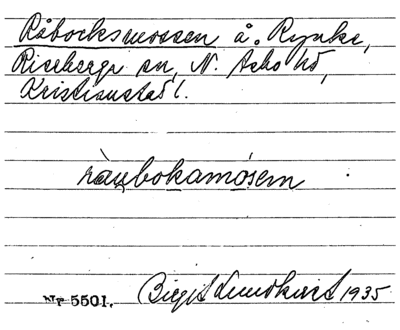 Råbocksmossen å. Rynke,
Riseberga sn, N. Åsbo hd,
Kristianstad l.
ràu̯bokamósem
Nr 5501. Birgit Lundkvist 1935